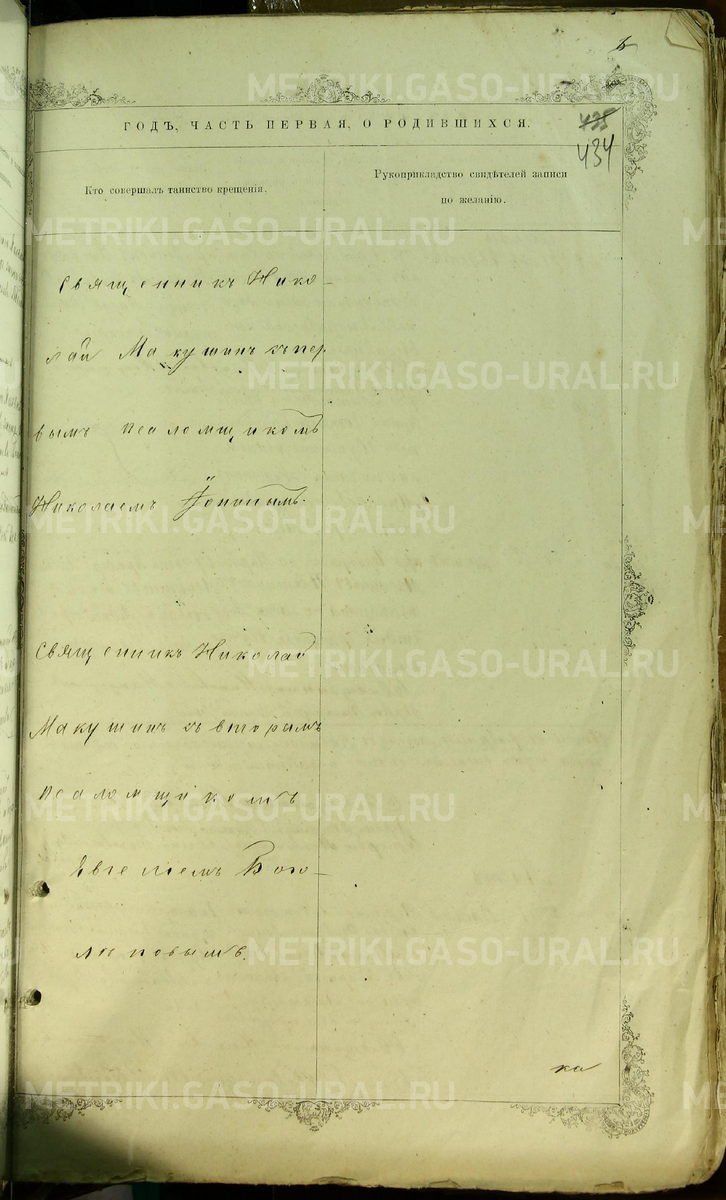 ГОДЪ, ЧАСТЬ ПЕРВАЯ, О РОДИВШИХСЯ.
435
434
Кто совершалъ таинство крещенія.
Рукоприкладство свидѣтелей записи
по желанію.
Священникъ Нико-
лай Макушинъ съ пер
вымъ псаломщикомъ
Николаемъ
Священникъ Николай
Макушинъ съ вторымъ
псаломщикомъ
Евгеніемъ Бого-
любовымъ.
ка
METRIKI.GASO-URAL.RU